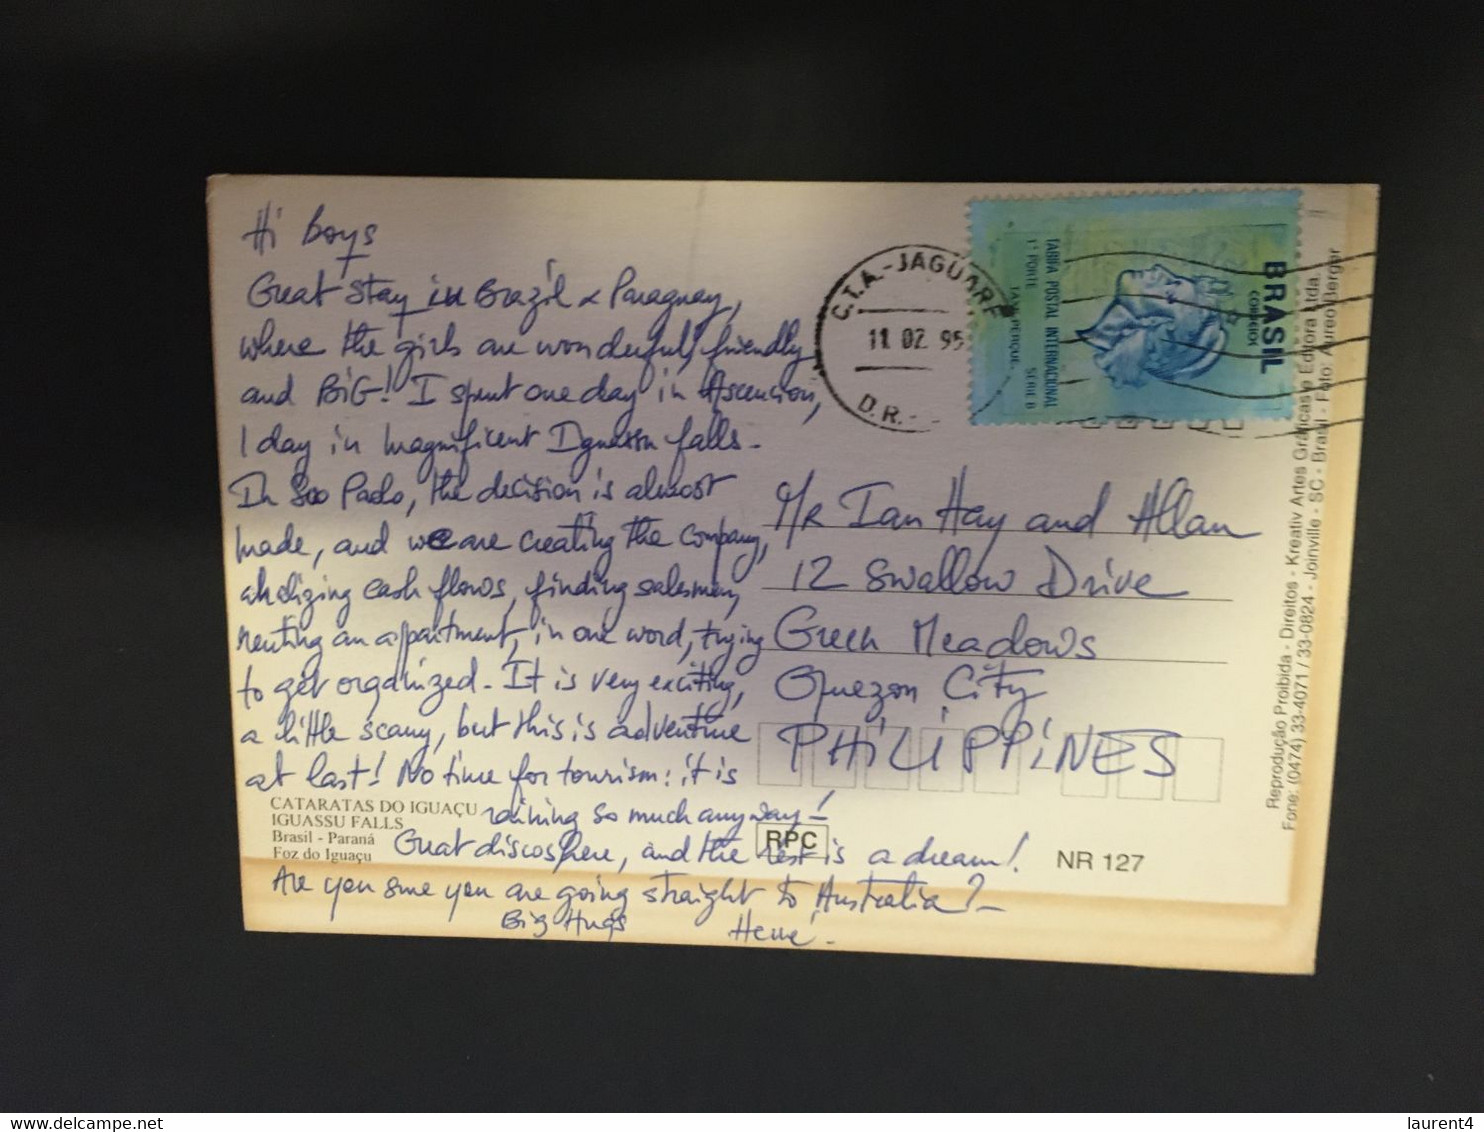 Hi boys
Great stay in Brazil & Paraguay,
where the girls are wonderful, friendly
and BiG! I spent one day in Ascencion,
1 day in magnificent Iguassu falls -
In Soo Paolo, the decision is almost
made, and we are creating the company,
analizing cash flows, finding salesmen,
renting an appartment, in one word, trying
to get organized - It is very exciting,
a little scary, but this is adventure
at last! No time for tourism: it is
raining so much anyway -!
Great discosphere, and the rest is a dream!
Are you sure you are going straight to Australia? -
Big Hugs Hervé -
CATARATAS DO IGUAÇU
IGUASSU FALLS
Brasil - Paraná
Foz do Iguaçu
C.T.A.-JAGUARÉ
11 02 95
D.R.-
BRASIL
CORREIOS
TARIFA POSTAL INTERNACIONAL
1º PORTE
SÉRIE B
Mr Ian Hay and Allan
12 Swallow Drive
Green Meadows
Quezon City
PHiLiPPiNES
RPC
NR 127
Reprodução Proibida - Direitos - Kreativ Artes Gráficas e Editora Ltda.
Fone: (0474) 33-4071 / 33-0824 - Joinville - SC - Brasil - Foto: Aureo Berger
laurent4